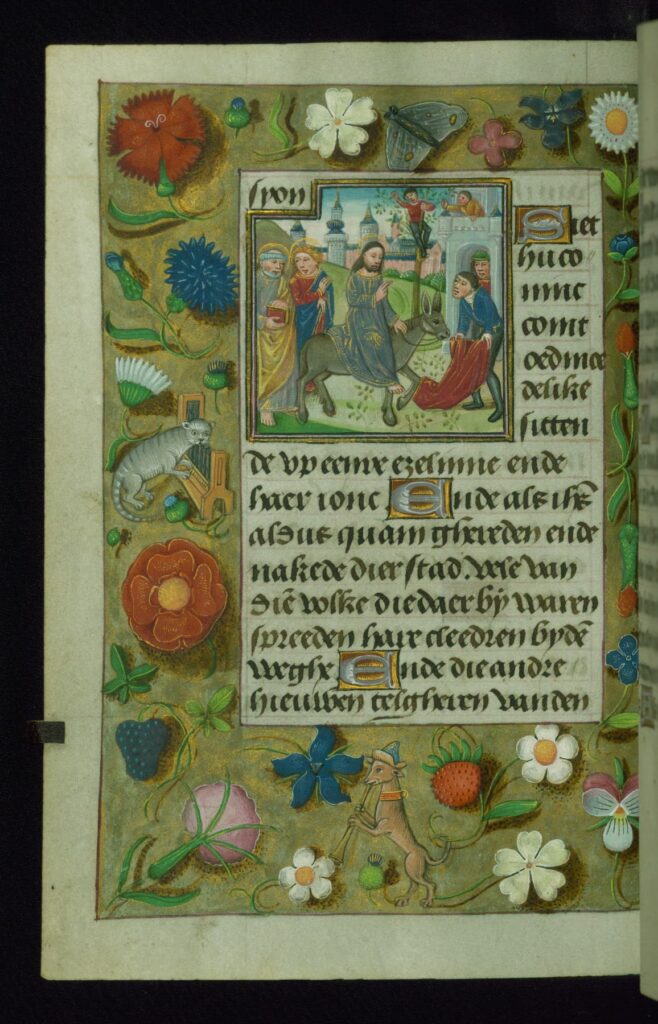 spon
Siet
hu co
ninc
comt
oedmoe
delike
sitten
de up eenre ezelinne ende
haer ionc Ende als ihs̄
aldus quam ghereden ende
nakede dier stad. vele van
diē volke die daer bij waren
spreeden hare cleedren bydē
weghe. Ende die andre
hieuwen telgheren vanden